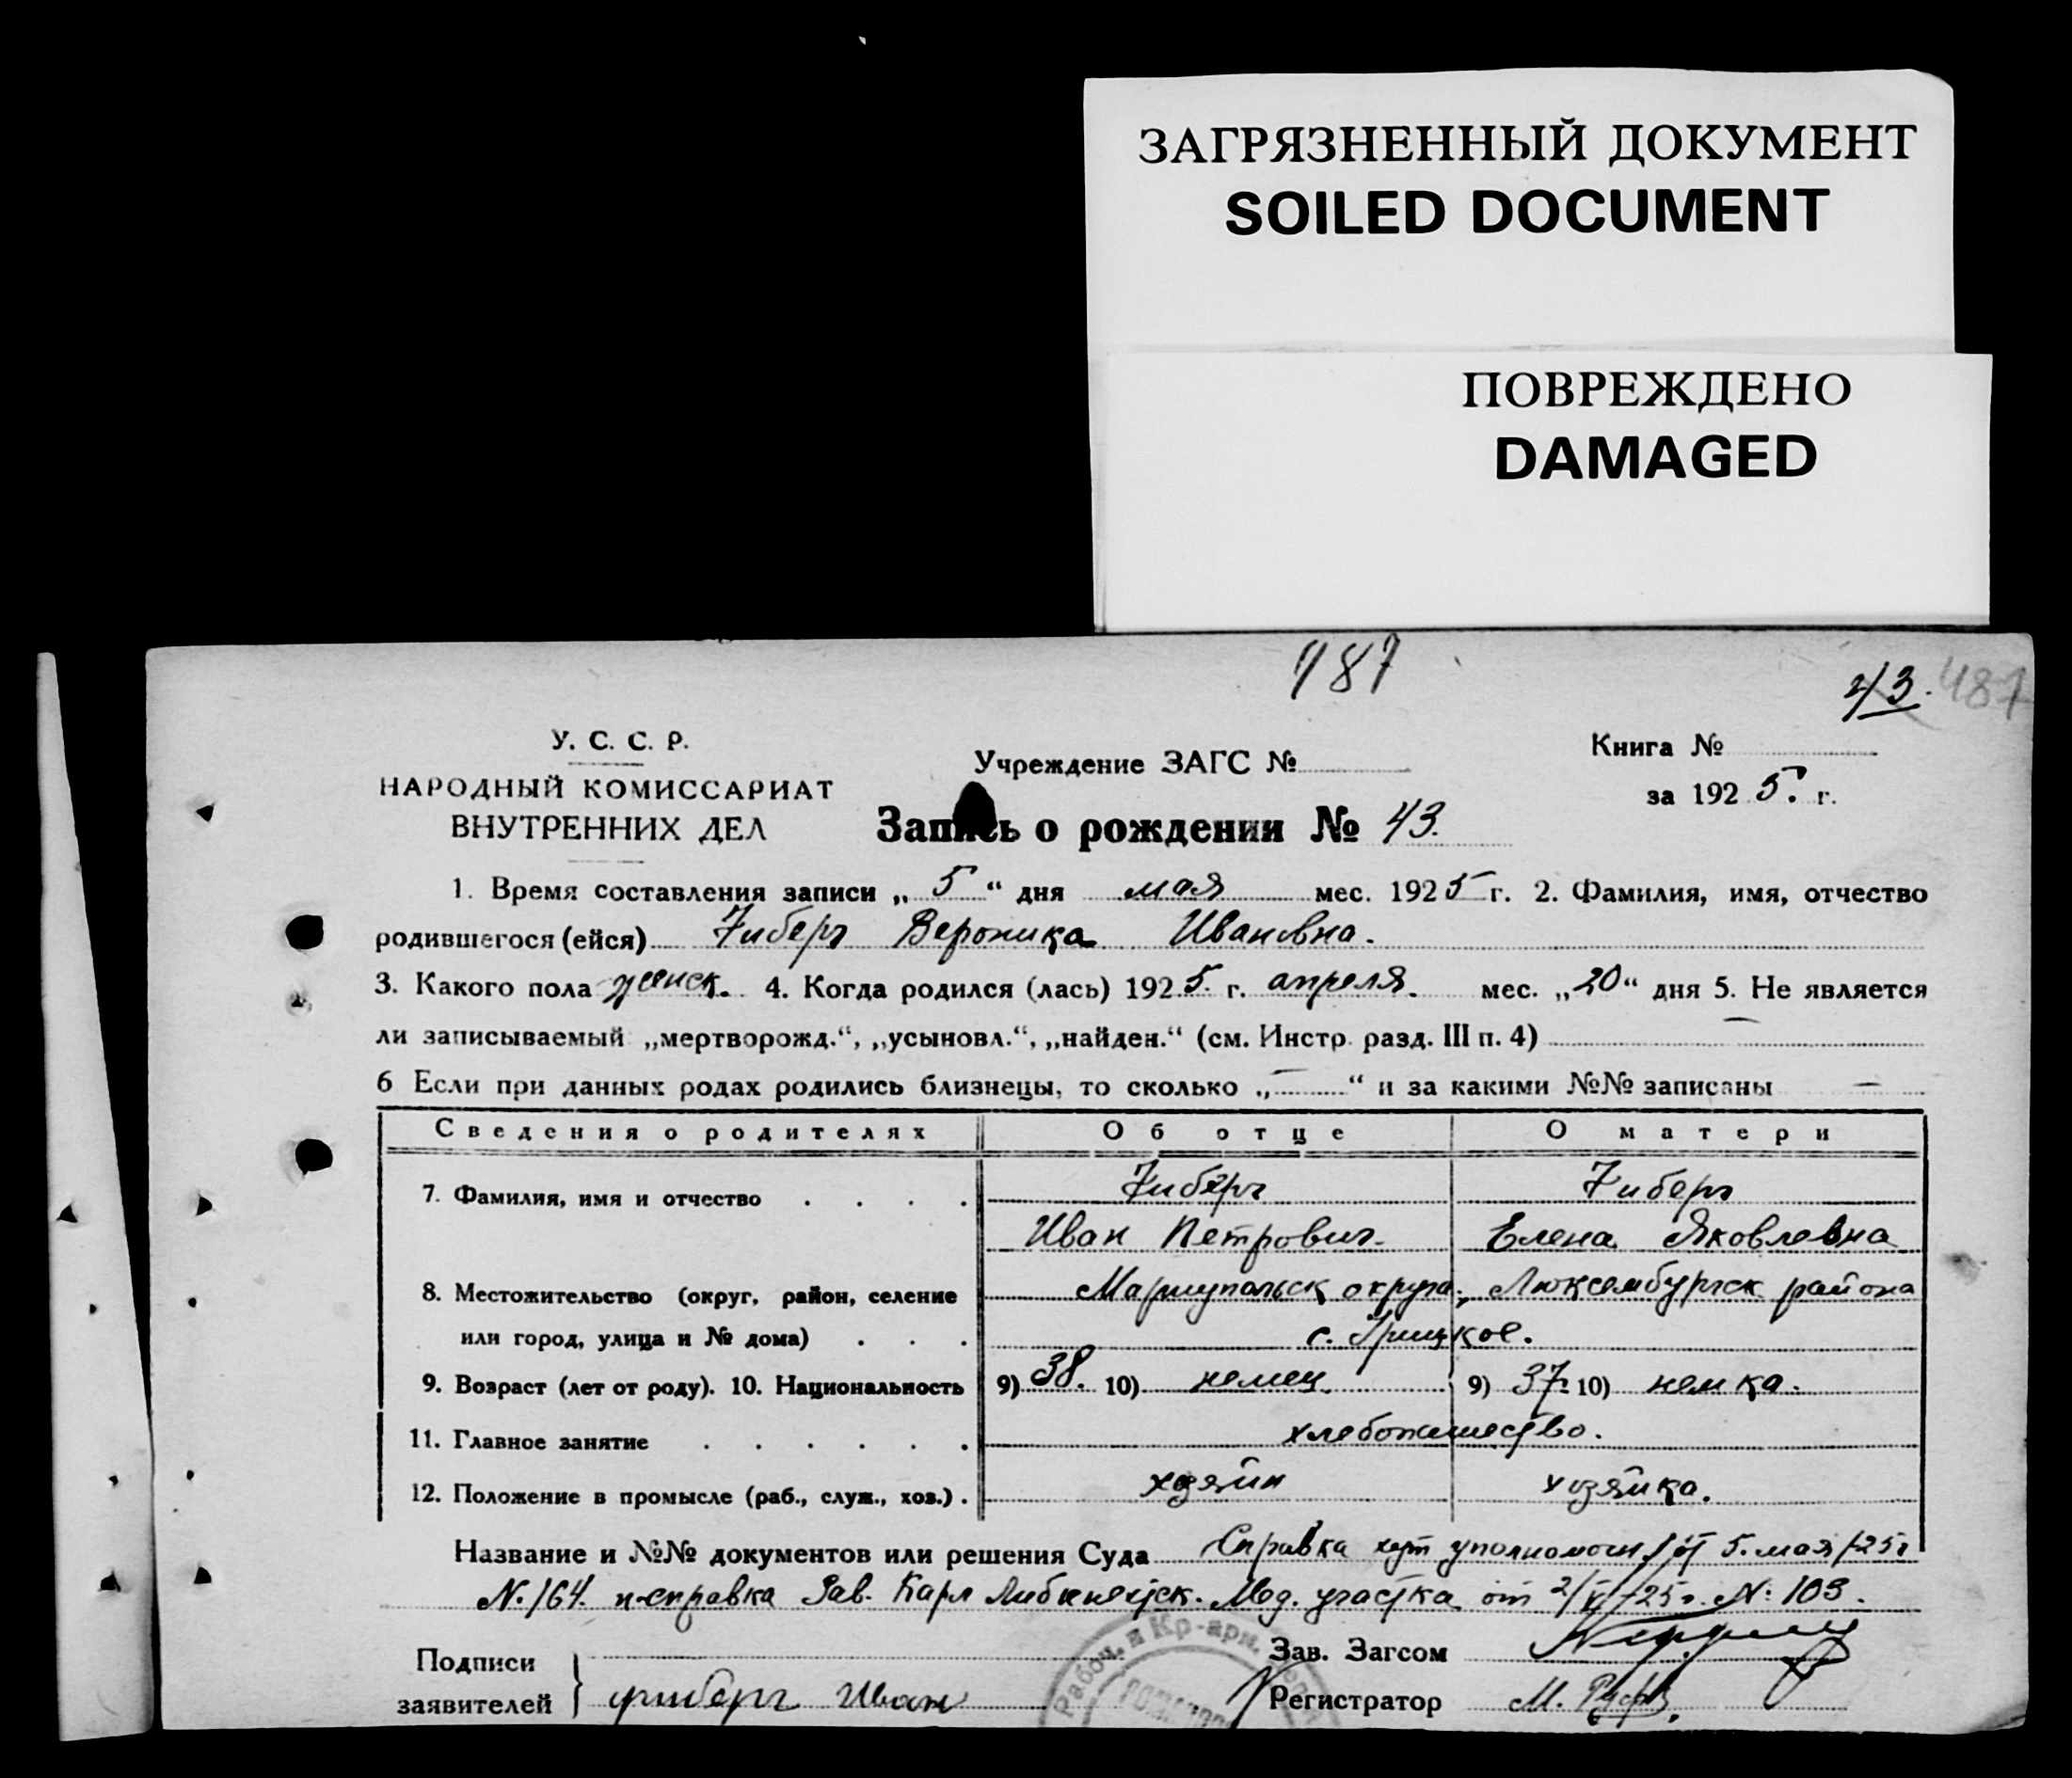 ЗАГРЯЗНЕННЫЙ ДОКУМЕНТ
SOILED DOCUMENT
ПОВРЕЖДЕНО
DAMAGED
487
43. 487
У. С. С. Р.
НАРОДНЫЙ КОМИССАРИАТ
ВНУТРЕННИХ ДЕЛ
Учреждение ЗАГС №
Книга №
за 1925. г.
Запись о рождении № 43.
1. Время составления записи „5“ дня мая мес. 1925 г. 2. Фамилия, имя, отчество
родившегося (ейся) Вероника Ивановна.
3. Какого пола женск. 4. Когда родился (лась) 1925. г. апреля. мес. „20“ дня 5. Не является
ли записываемый „мертворожд.“, „усыновл.“, „найден.“ (см. Инстр. разд. III п. 4) —
6 Если при данных родах родились близнецы, то сколько „—“ и за какими №№ записаны —
Сведения о родителях Об отце О матери
7. Фамилия, имя и отчество
Иван Петрович. Елена Яковлевна
8. Местожительство (округ, район, селение Мариупольск округа, Люксембургск района
или город, улица и № дома) с.
9. Возраст (лет от роду). 10. Национальность 9) 38. 10) немец 9) 37. 10) немка.
11. Главное занятие хлебопашество.
12. Положение в промысле (раб., служ., хоз.). хозяин хозяйка.
Название и №№ документов или решения Суда Справка упономоч. от 5. мая /25 г
N. 164. и справка Зав. Карл Либкнехтск. Мед. участка от 2/V/25 г. N: 103.
Рабоч. и Кр-арм.
Подписи
заявителей Иван
Зав. Загсом
Регистратор М.